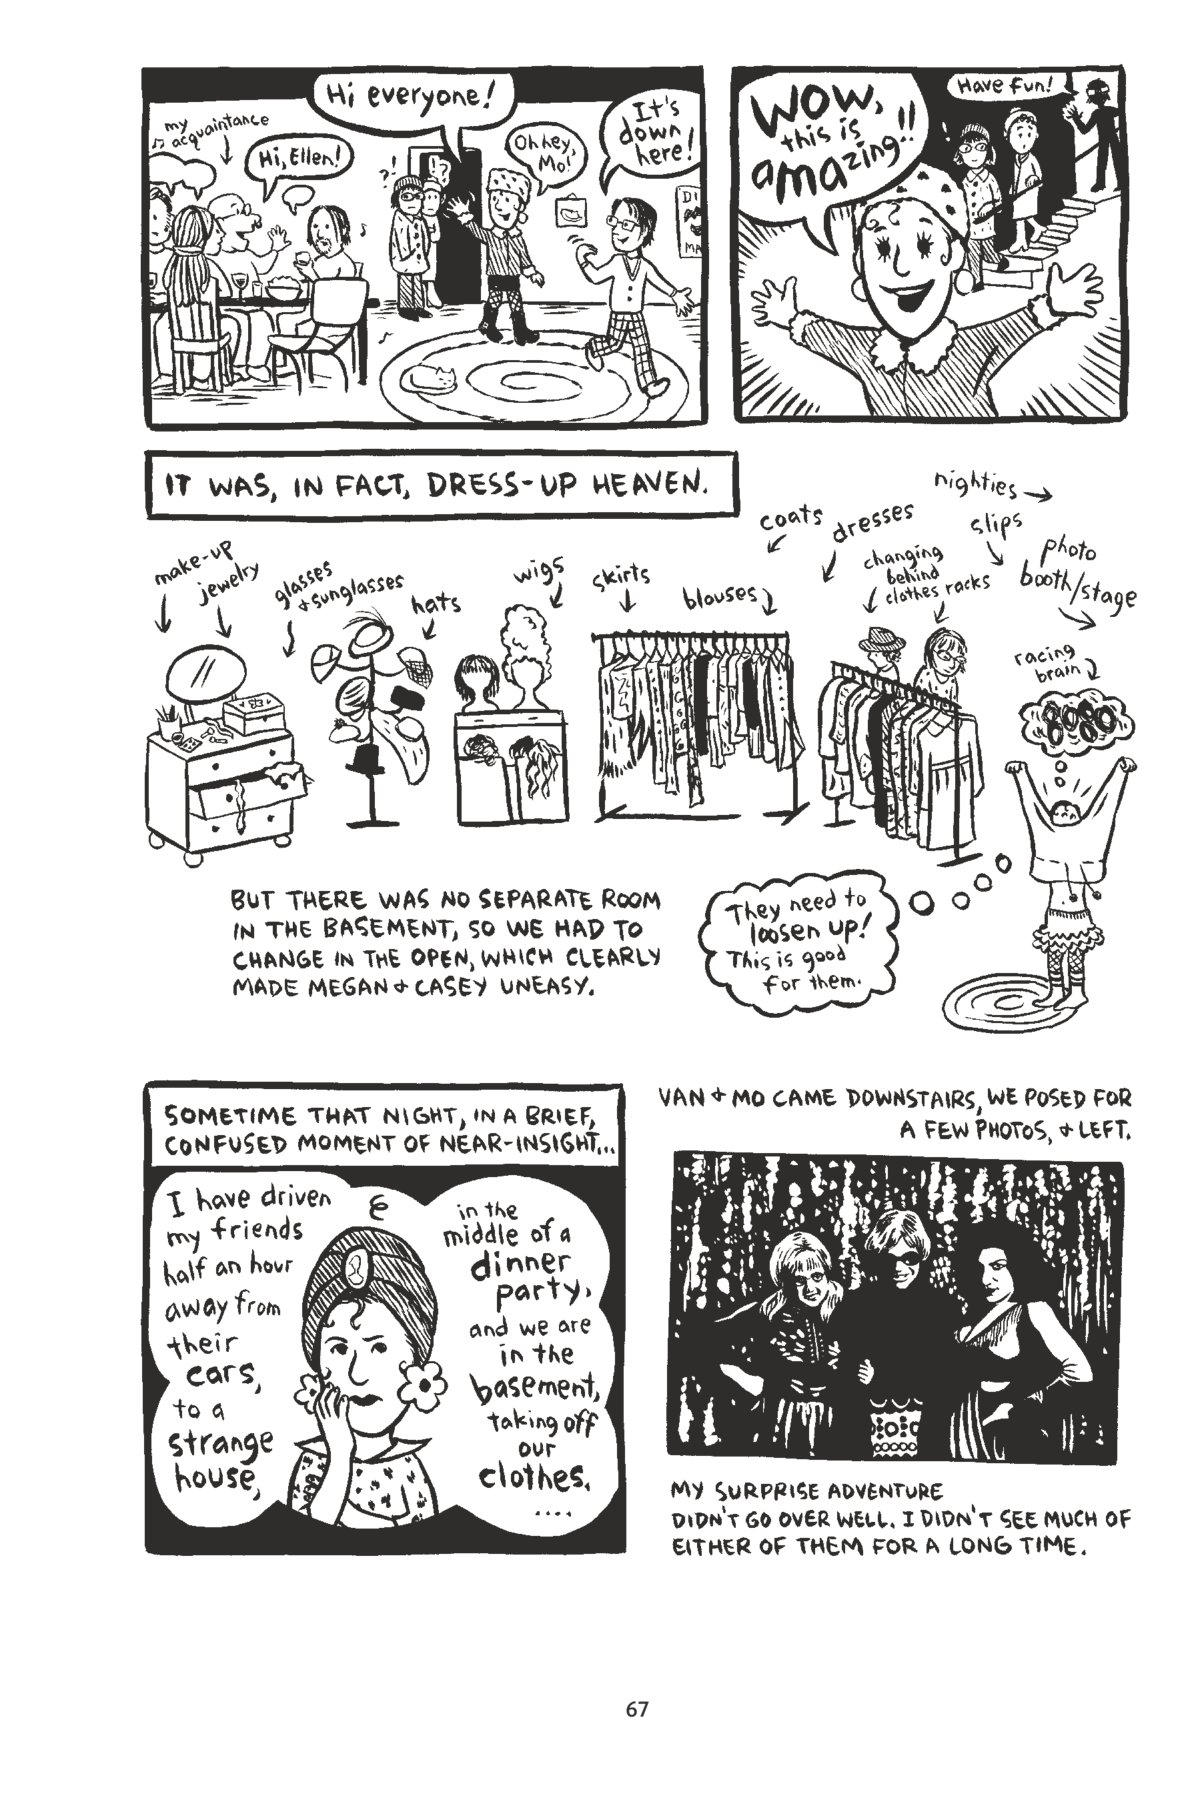 Hi everyone!
my
acquaintance
Hi, Ellen!
?!
!?
Oh hey,
Mo!
It's
down
here!
DI
MA
WOW,
this is
amazing!!
!
Have fun!
IT WAS, IN FACT, DRESS-UP HEAVEN.
make-up
jewelry
glasses
+ sunglasses
hats
wigs
skirts
blouses
coats
dresses
changing
behind
clothes racks
nighties
slips
photo
booth/stage
racing
brain
BUT THERE WAS NO SEPARATE ROOM
IN THE BASEMENT, SO WE HAD TO
CHANGE IN THE OPEN, WHICH CLEARLY
MADE MEGAN + CASEY UNEASY.
They need to
loosen up!
This is good
for them.
SOMETIME THAT NIGHT, IN A BRIEF,
CONFUSED MOMENT OF NEAR-INSIGHT...
I have driven
my friends
half an hour
away from
their
cars,
to a
strange
house,
in the
middle of a
dinner
party,
and we are
in the
basement,
taking off
our
clothes.
....
VAN + MO CAME DOWNSTAIRS, WE POSED FOR
A FEW PHOTOS, + LEFT.
MY SURPRISE ADVENTURE
DIDN'T GO OVER WELL. I DIDN'T SEE MUCH OF
EITHER OF THEM FOR A LONG TIME.
67